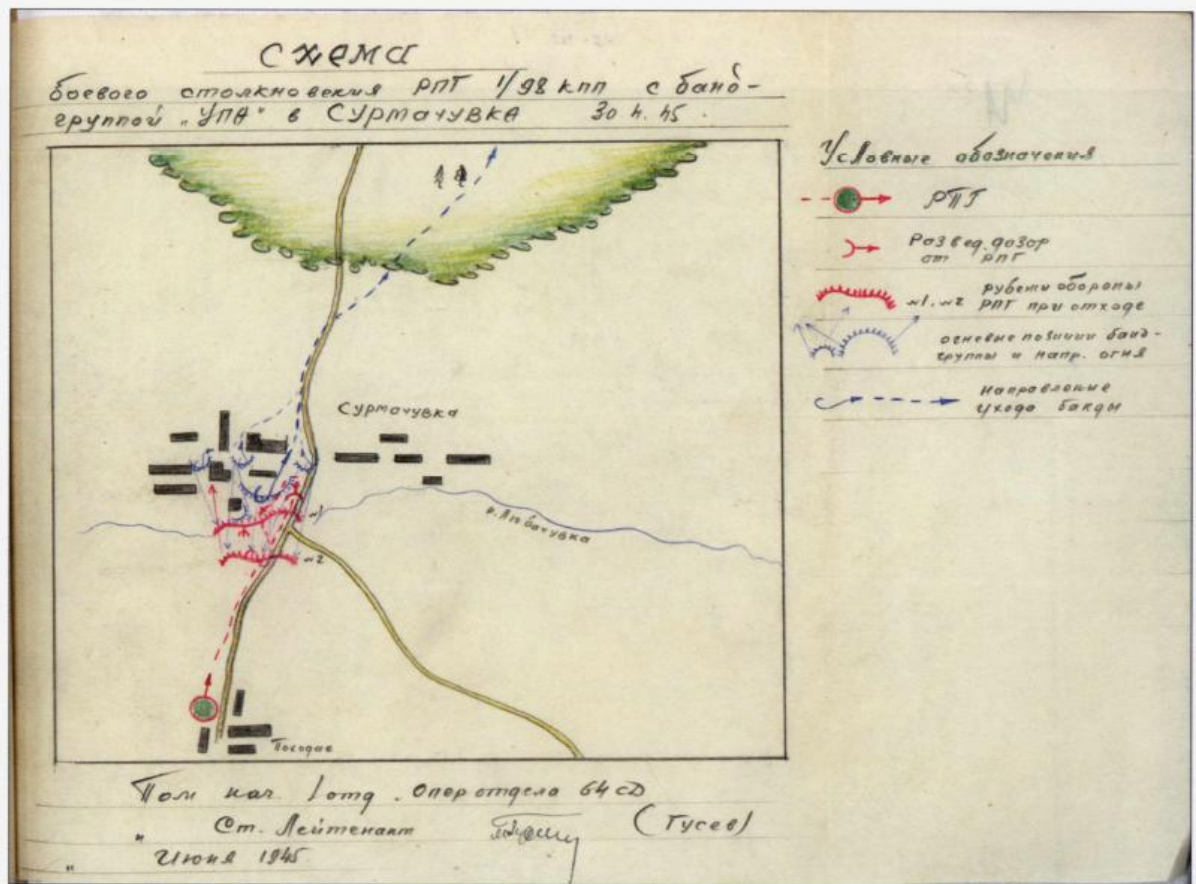 Схема
боевого столкновения РПГ 1/98 кпп с банд-
группой „УПА" в Сурмачувка 30.4.45.
Условные обозначения
РПГ
Развед. дозор
от РПГ
№1, №2 рубежи обороны
РПГ при отходе
огневые позиции банд-
группы и напр. огня
Направление
ухода банды
Сурмачувка
№1
№2
Пом нач. 1 отд. Опер отдела 64 сд
„ Ст. Лейтенант (Гусев)
„ Июня 1945